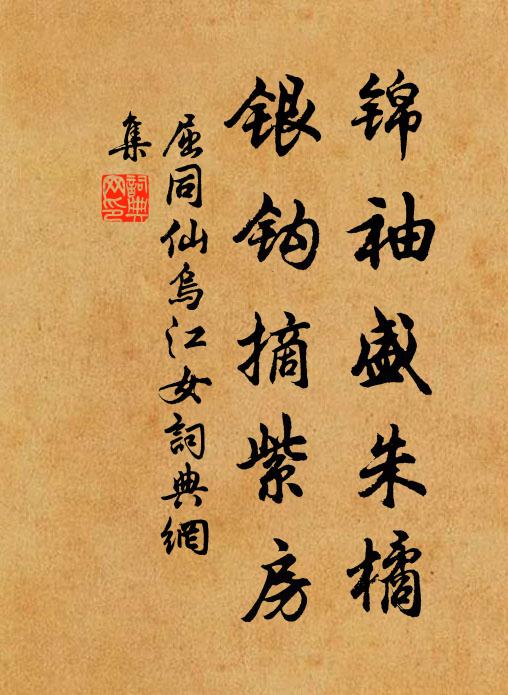 锦袖盛朱橘
银钩摘紫房
屈同仙乌江女詞典網
集
詞典
网印